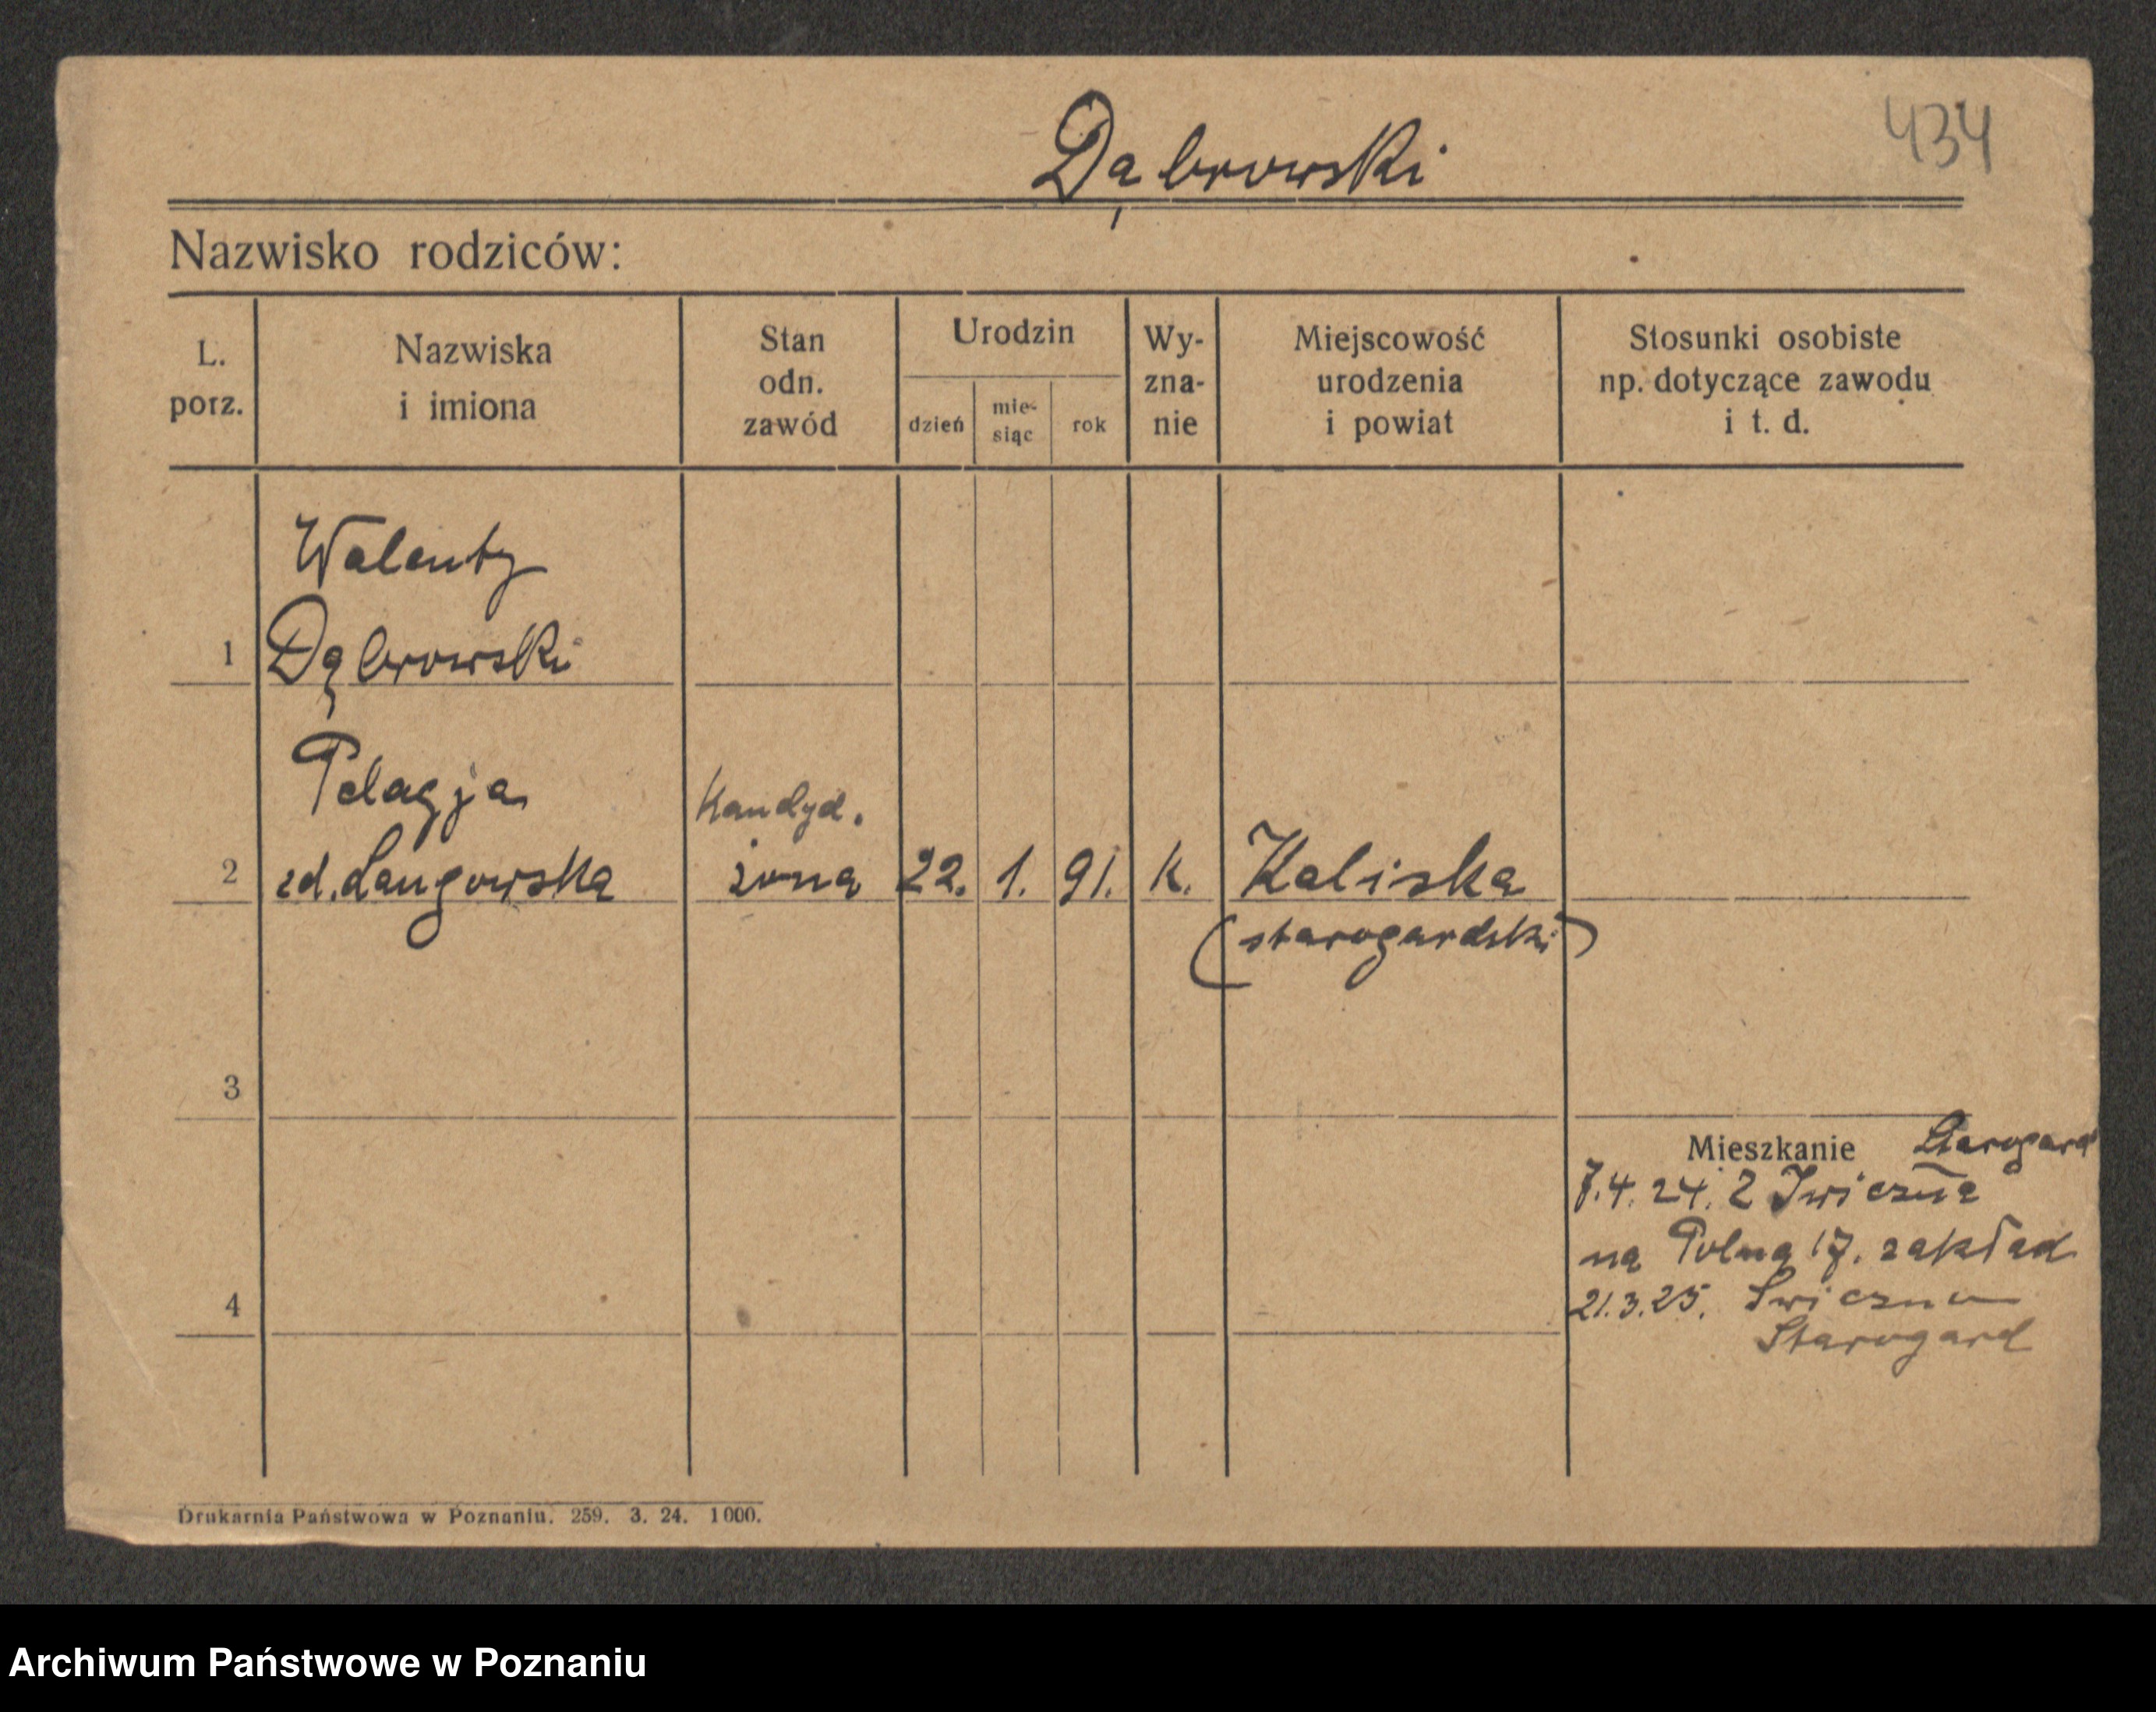 434
Dąbrowski
Nazwisko rodziców:
L. porz.
Nazwiska i imiona
Stan odn. zawód
Urodzin
dzień
mie-siąc
rok
Wy-zna-nie
Miejscowość urodzenia i powiat
Stosunki osobiste np. dotyczące zawodu i t. d.
Walenty
1 Dąbrowski
Pelagja
Kandyd.
2 zd. Langowska żona 22. 1. 91. k. Kaliska
(starogardski)
3
Mieszkanie Starogard
7.4.24. Z Iwiczna
na Polną 17. zakład
4 21.3.25. Iwiczno
Starogard
Drukarnia Państwowa w Poznaniu. 259. 3. 24. 1000.
Archiwum Państwowe w Poznaniu